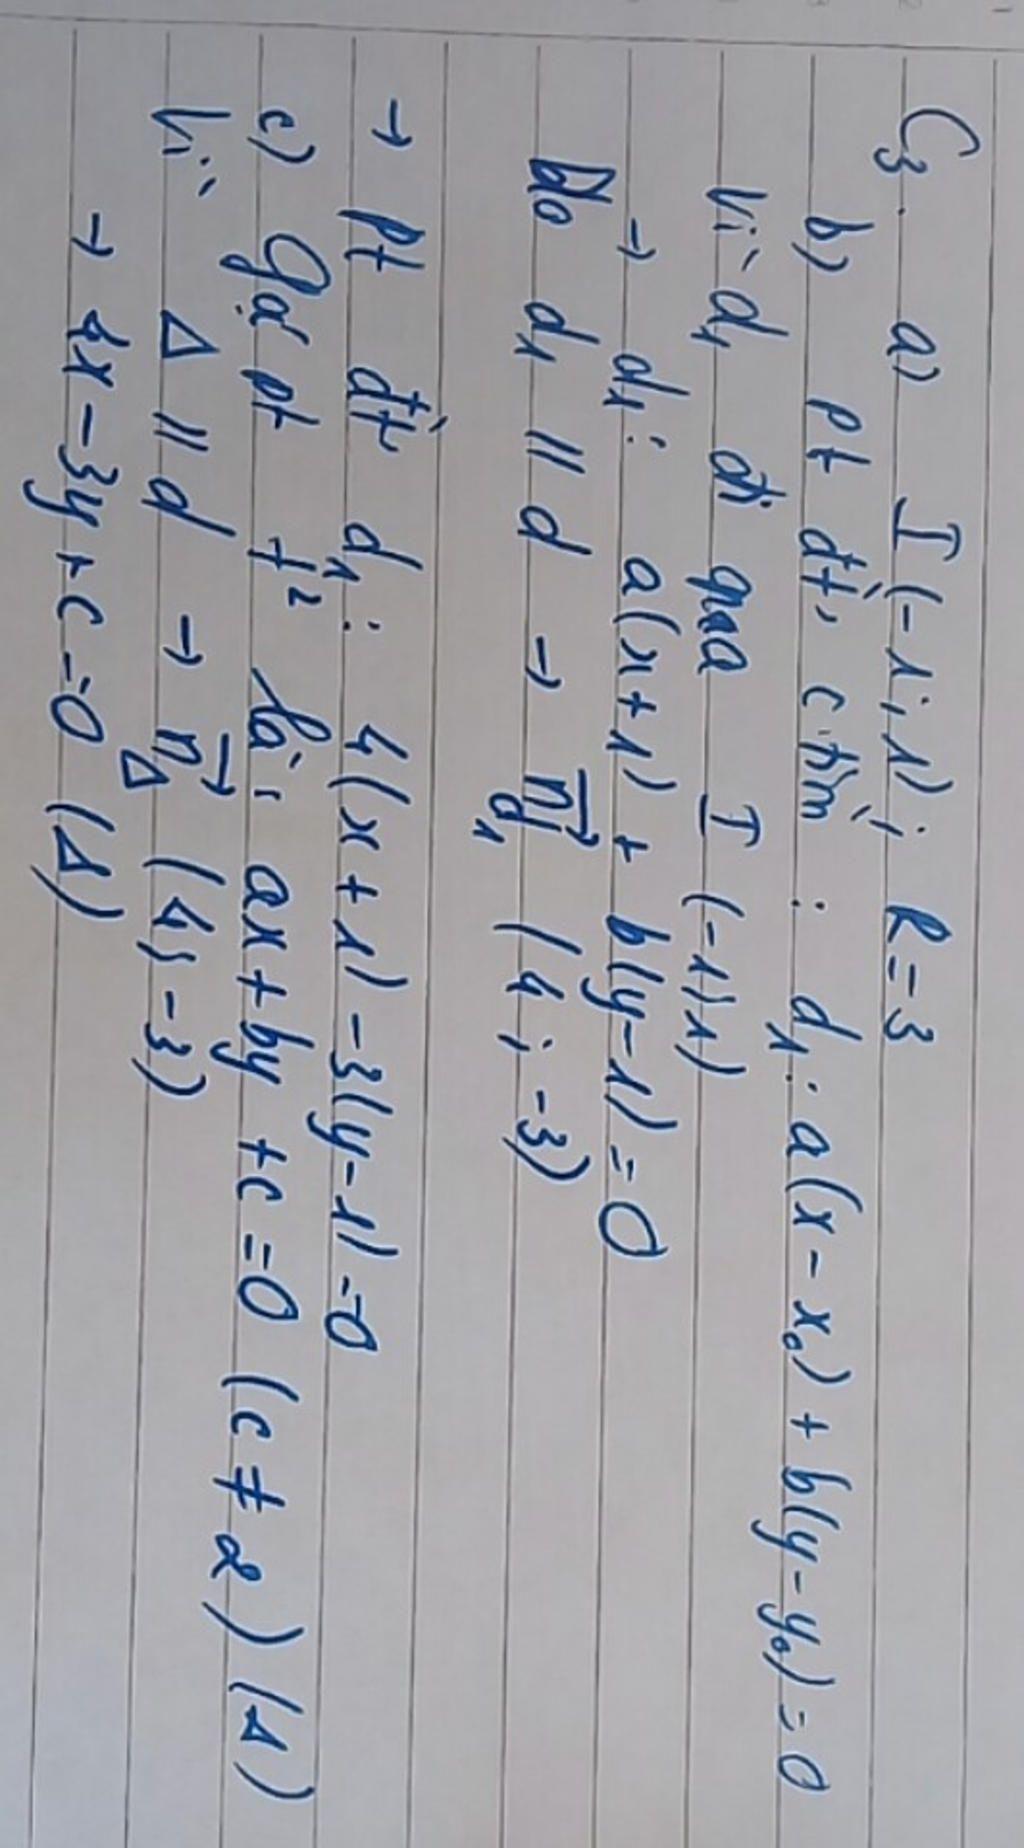 C3. a) I(-1;1); R=3
b) pt đt, c tìm : d1: a(x-x0)+b(y-y0)=0
Vì d1 đi qua I (-1;1)
→ d1: a(x+1)+b(y-1)=0
Do d1 // d → n⃗d1 (4;-3)
→ Pt đt d1: 4(x+1)-3(y-1)=0
c) Gọi pt t² là: ax+by+c=0 (c≠2) (Δ)
Vì Δ // d → n⃗Δ (4;-3)
→ 4x-3y+c=0 (Δ)